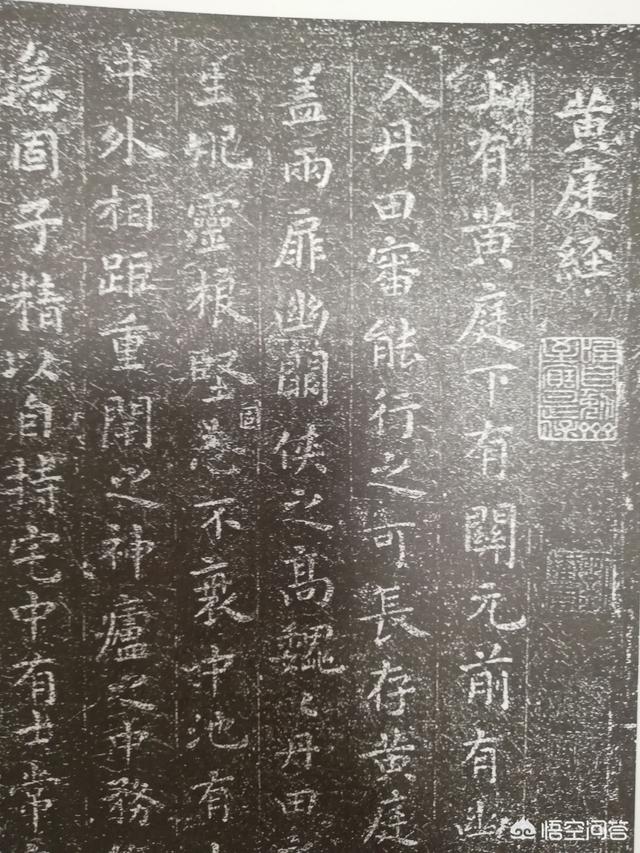 黄庭経
上有黄庭下有關元前有幽
入丹田審能行之可長存黄庭
盖兩扉幽關俠之髙魏〻丹田
靈根堅固志不衰中池有
中外相距重閇之神廬之中務
急固子精以自持宅中有士常
悟空问答